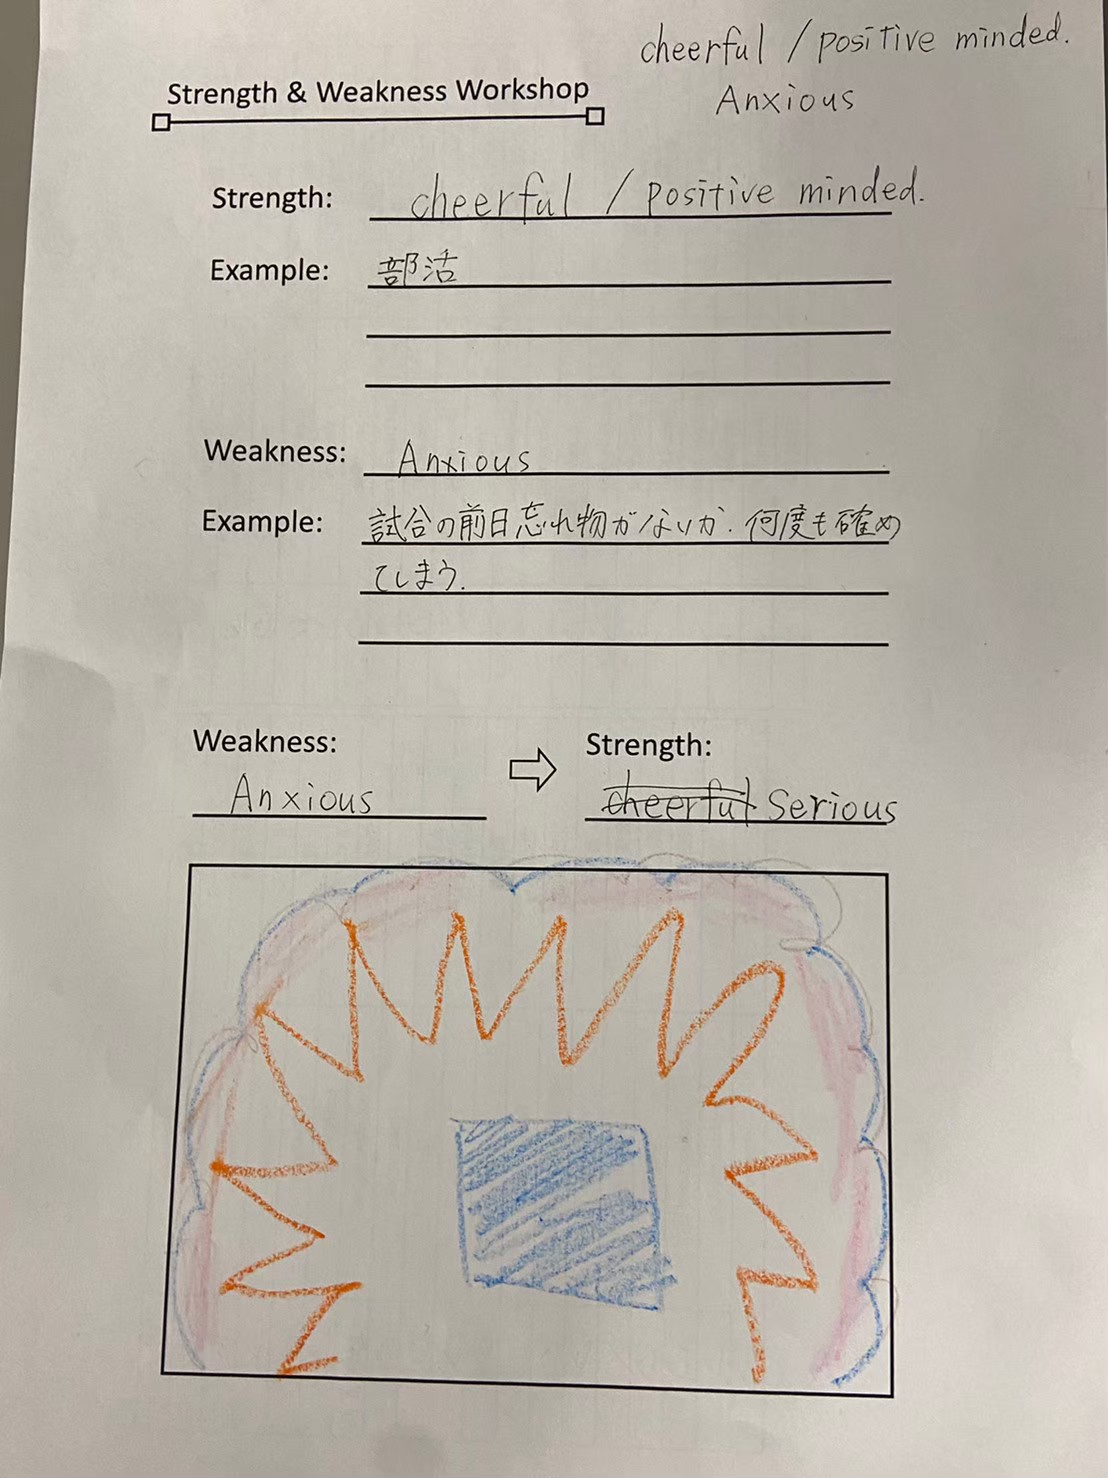 cheerful / positive minded.
Anxious
Strength & Weakness Workshop
Strength: cheerful / positive minded.
Example: 部活
Weakness: Anxious
Example: 試合の前日忘れ物がないか. 何度も確め
てしまう.
Weakness:
Strength:
Anxious
cheerful Serious